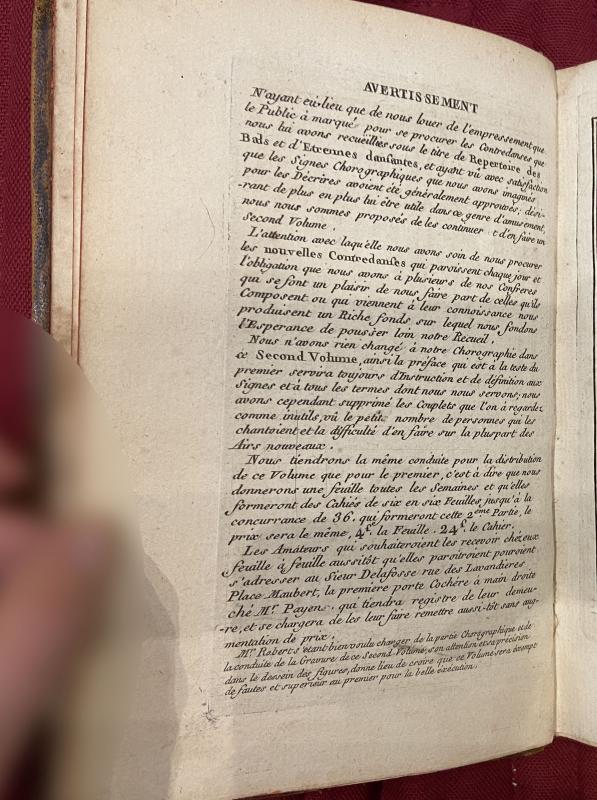 AVERTISSEMENT
N'ayant eu lieu que de nous louer de l'empressement que
le Public à marqué pour se procurer les Contredanses que
nous lui avons recueillies sous le titre de Repertoire des
Bals et d'Etrennes dansantes, et ayant vû avec satisfaction
que les Signes Chorographiques que nous avons imaginés
pour les Décrires avoient été généralement approuvés; dési-
-rant de plus en plus lui être utile dans ce genre d'amusement,
nous nous sommes proposés de les continuer et d'en faire un
Second Volume.
L'attention avec laqu'elle nous avons soin de nous procurer
les nouvelles Contredanses qui paroissent chaque jour et
l'obligation que nous avons à plusieurs de nos Confreres
qui se font un plaisir de nous faire part de celles qu'ils
Composent ou qui viennent à leur connoissance nous
produisent un Riche fonds sur lequel nous fondons
l'Esperance de pousser loin notre Recueil.
Nous n'avons rien changé à notre Chorographie dans
ce Second Volume, ainsi la préface qui est a la teste du
premier servira toujours d'Instruction et de définition aux
Signes et à tous les termes dont nous nous servons; nous
avons cependant supprimé les Couplets que l'on à regardez
comme inutils, vû le petit nombre de personnes qui les
chantoient et la difficulté d'en faire sur la pluspart des
Airs nouveaux.
Nous tiendrons la même conduite pour la distribution
de ce Volume que pour le premier, c'est à dire que nous
donnerons une feuille toutes les Semaines et qu'elles
formeront des Cahiés de six en six Feuilles, jusqu'à la
concurrance de 36. qui formeront cette 2eme Partie, le
prix sera le même, 4f. la Feuille. 24f. le Cahier.
Les Amateurs qui souhaiteroient les recevoir chez eux
feuille à feuille aussitôt qu'elles paroitroient pouroient
s'adresser au Sieur Delafosse rue des Lavandières
Place Maubert, la première porte Cochère à main droite
ché Mr. Payen, qui tiendra registre de leur demeu-
-re, et se chargera de les leur faire remettre aussi-tôt sans aug-
mentation de prix.
Mr. Robert s'étant bien voulu charger de la partie Chorographique et de
la conduite de la Gravure de ce Second Volume, son attention et sa précision
dans le dessein des figures, donne lieu de croire que ce Volume sera exempt
de fautes et superieur au premier pour la belle éxécution.